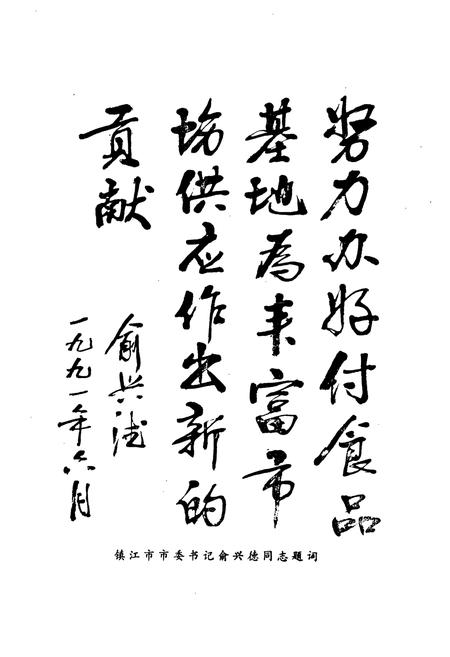 努力办好付食品
基地为丰富市
场供应作出新的
贡献
俞兴德
一九九一年六月
镇江市市委书记俞兴德同志题词